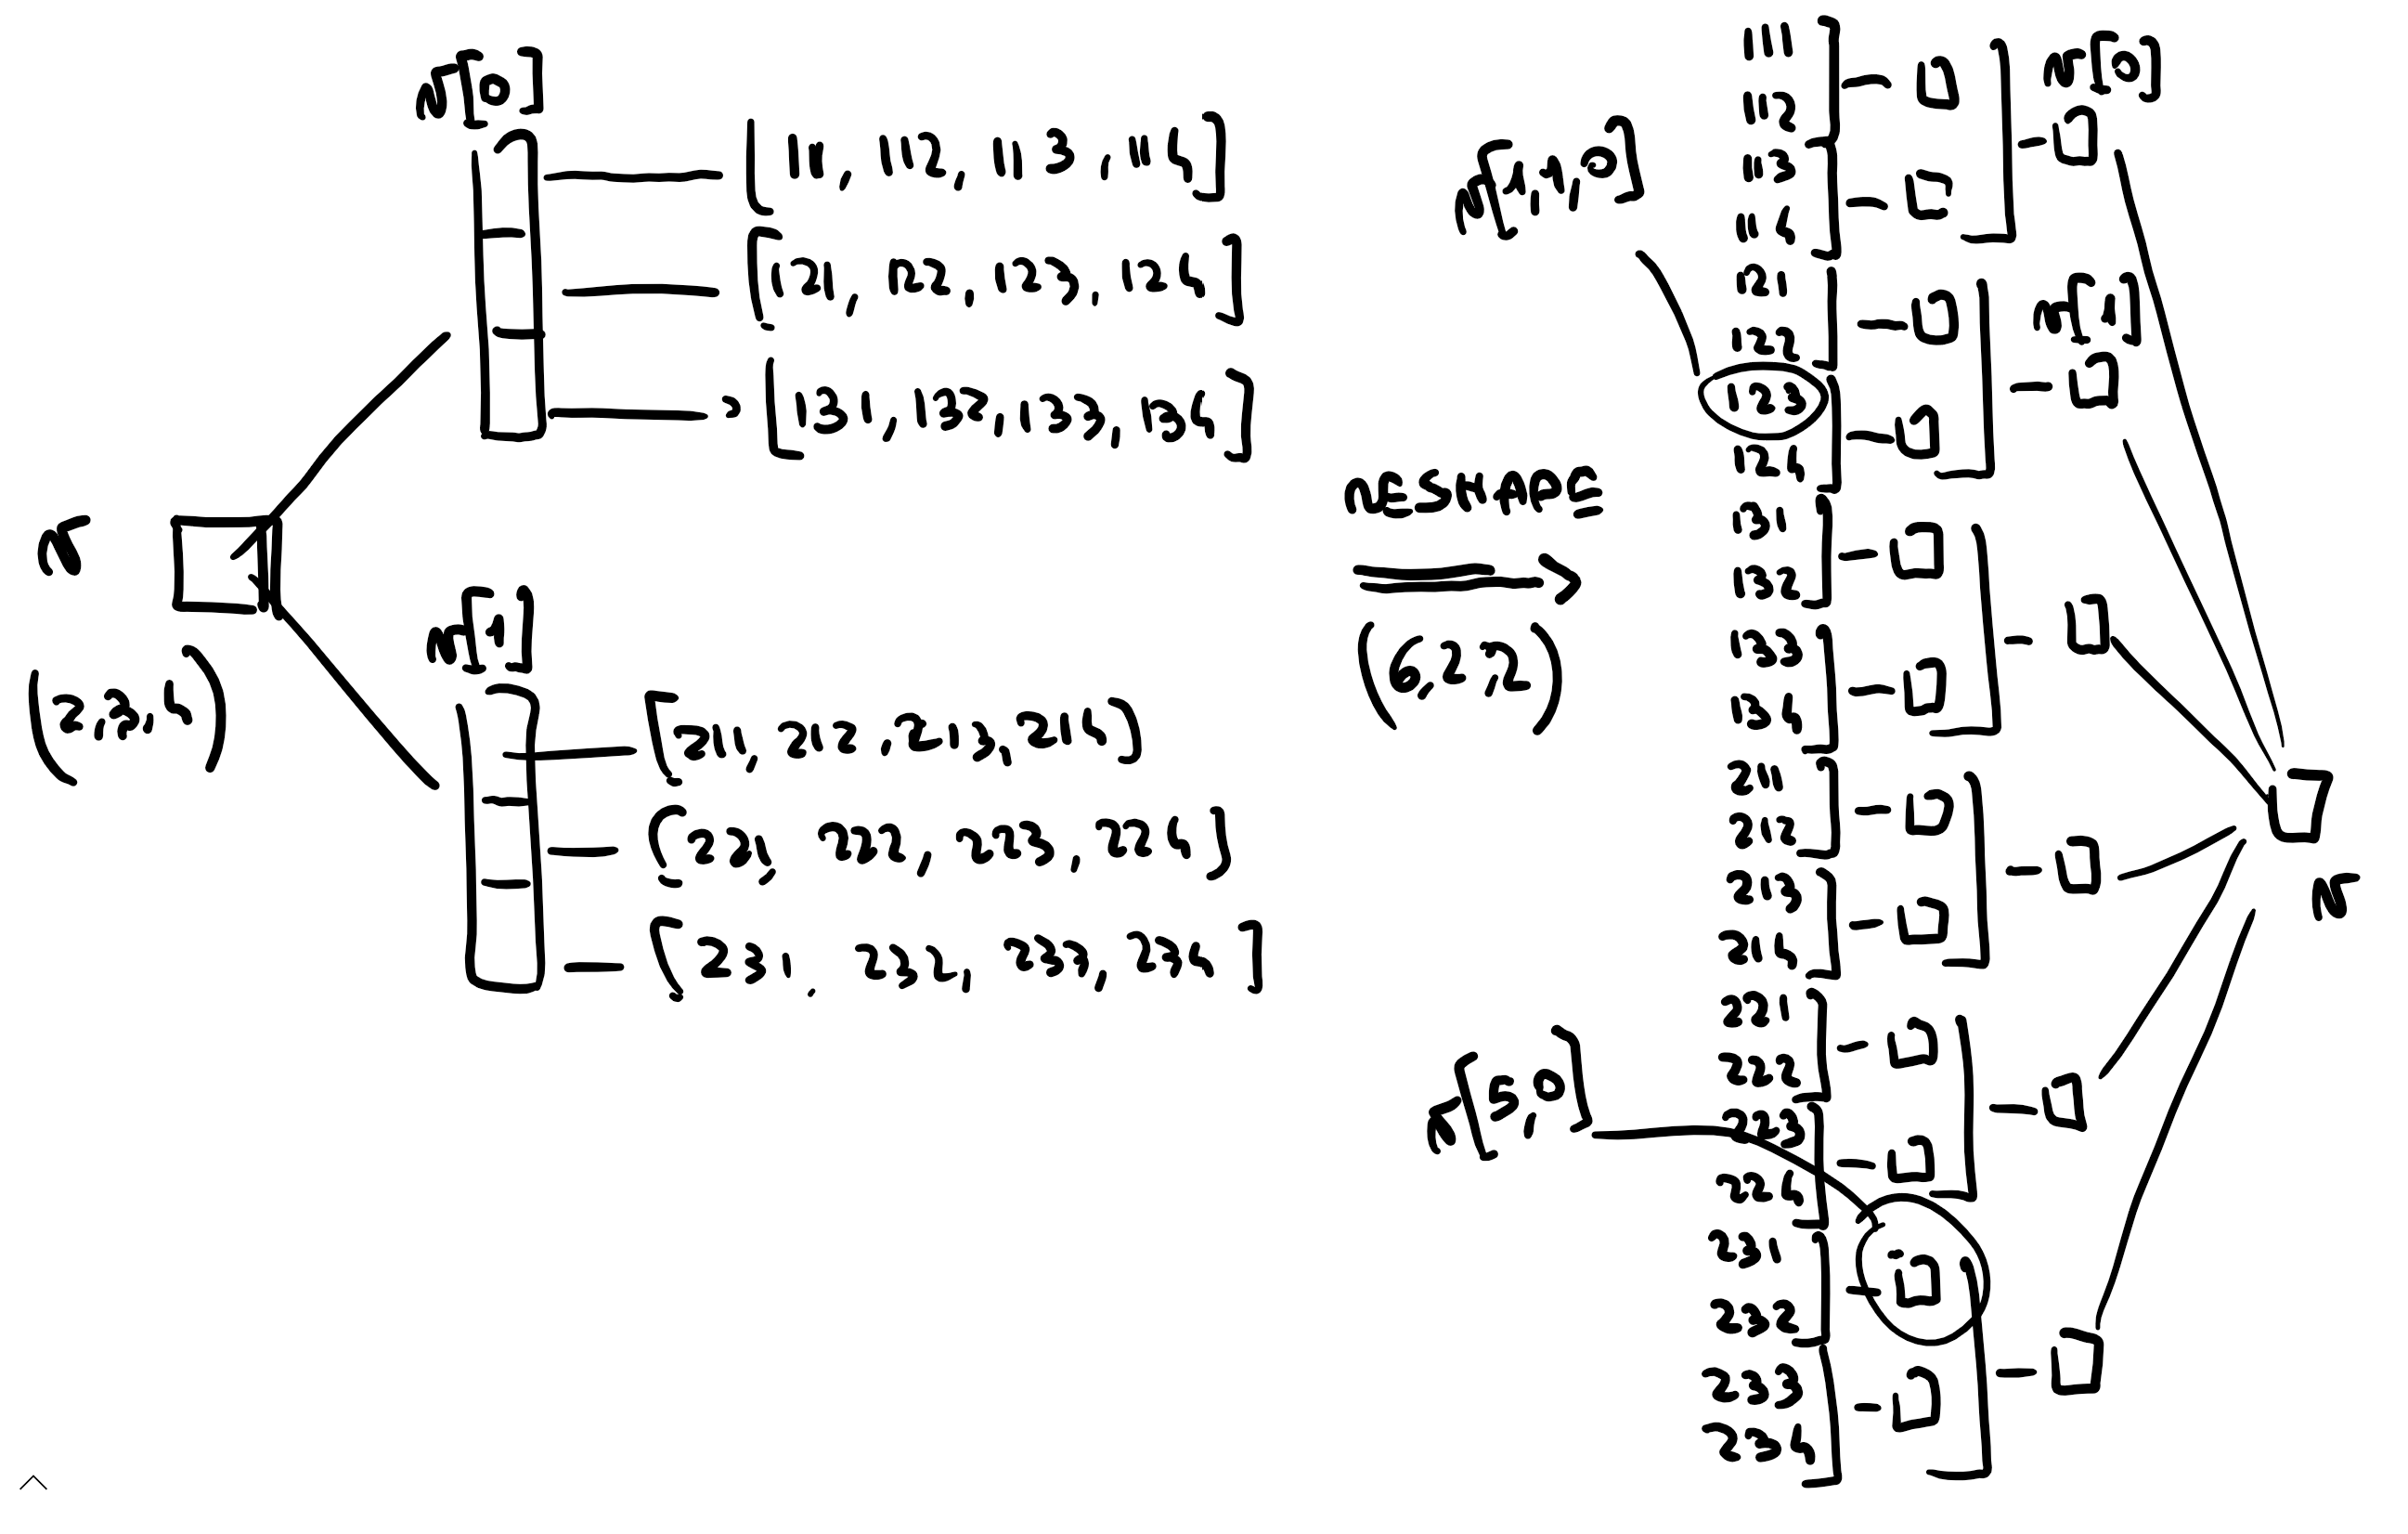 N[0]
[111, 112, 113, 114]
[121, 122, 123, 124]
[131, 132, 133, 134]
N
(2,3,4)
N[1]
[211, 212, 213, 214]
[221, 222, 223, 224]
[231, 232, 233, 234]
RESHAPE
(6,2,2)
N[1,1,0]
N[5,0]
111
112
113
114
121
122
123
124
131
132
133
134
211
212
213
214
221
222
223
224
231
232
233
234
N[0]
N[1]
N